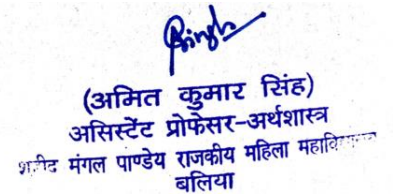 Singh
(अमित कुमार सिंह)
असिस्टेंट प्रोफेसर-अर्थशास्त्र
शहीद मंगल पाण्डेय राजकीय महिला महाविद्यालय
बलिया